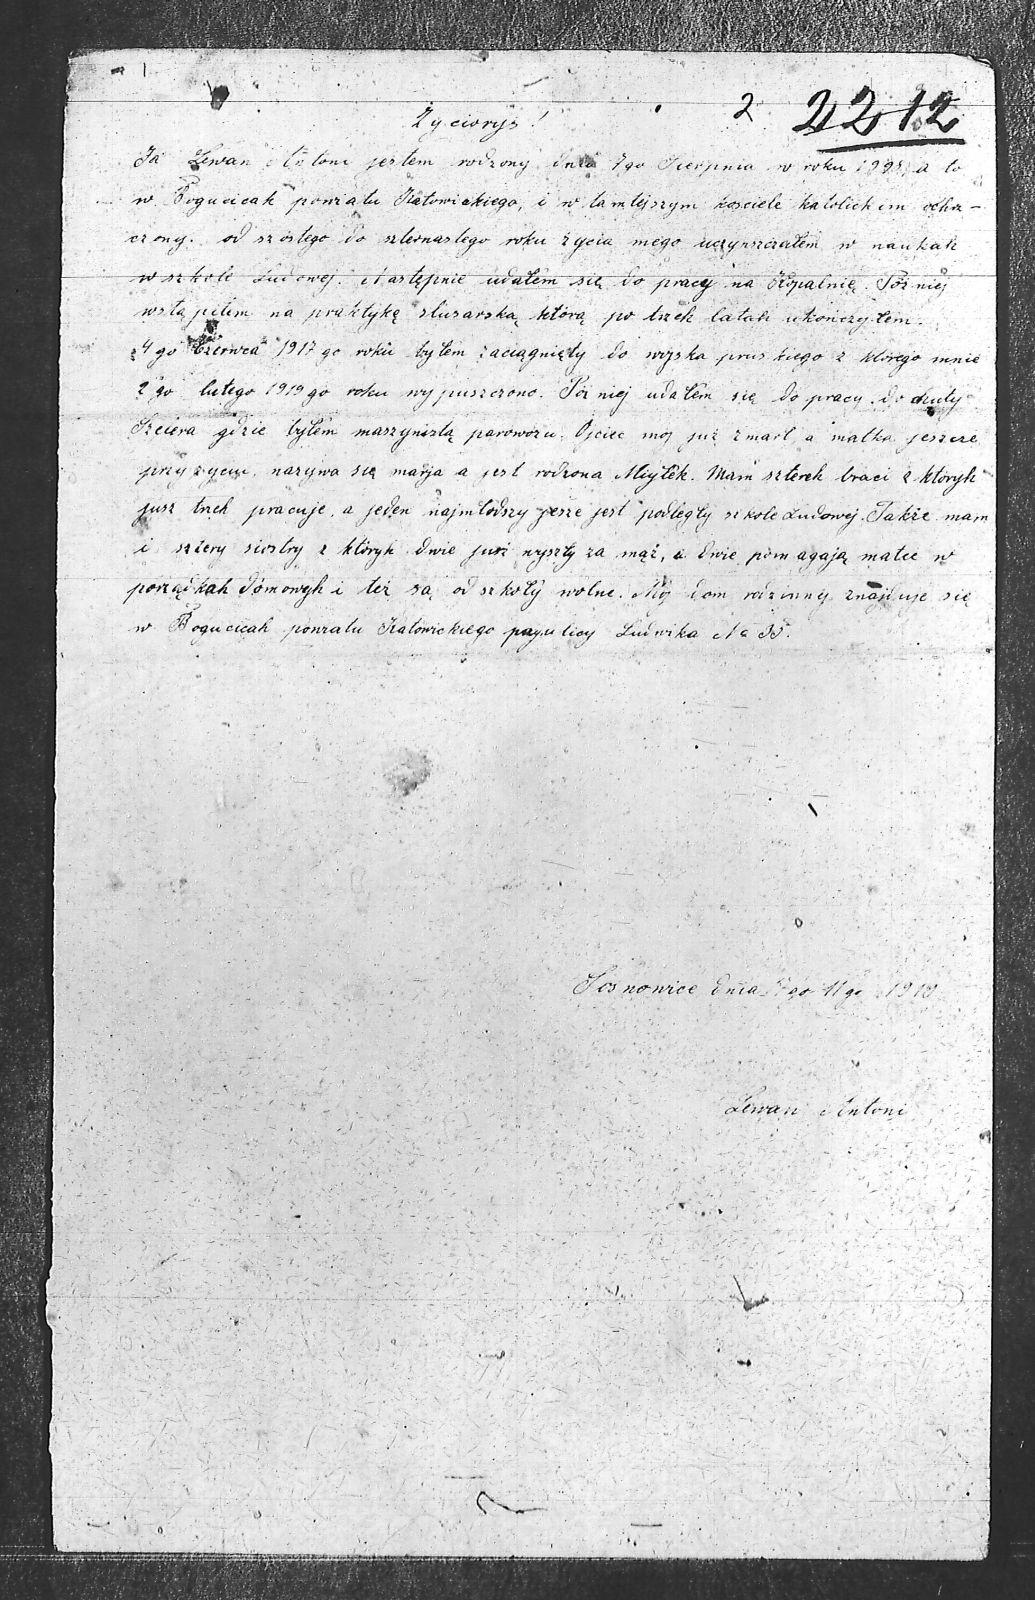 2 2212
Życiorys!
Ja Lewan Antoni jestem rodzony dnia 7go Sierpnia w roku a to
w Bogucicah powiatu Katowickiego, i w tamtejszym kosciele katolickim ochrz-
czony. od szóstego do szternastego roku życia mego uczynszczałem w naukah
w szkole Ludowej. Następnie udałem się do pracy na Kopalnię. Póżniej
wstąpiłem na praktykę slusarską, którą po trzeh latah ukończyłem.
4go Czerwca 1917go roku byłem zaciągnięty do wojska pruskiego z którego mnie
2go lutego 1919go roku wypuszczono. Póżniej udałem się do pracy do
gdzie byłem maszynistą parowozu. Ojciec moj już zmarł a matka jeszcze
przy życiu, nazywa się marja a jest rodzona Miyłek. Mam szterek braci z któryh
jusz trzeh pracuje, a jeden najmłodszy jesze jest podległy szkole Ludowej. Także mam
i sztery siostry z któryh dwie już wyszły za mąż, a dwie pomagają matce w
porządkah domowyh i też są od szkoły wolne. Mój dom rodzinny znajduje się
w Bogucicah powiatu Katowickiego przy ulicy Ludwika No 35.
Sosnowice dnia 11go 1919
Lewan Antoni